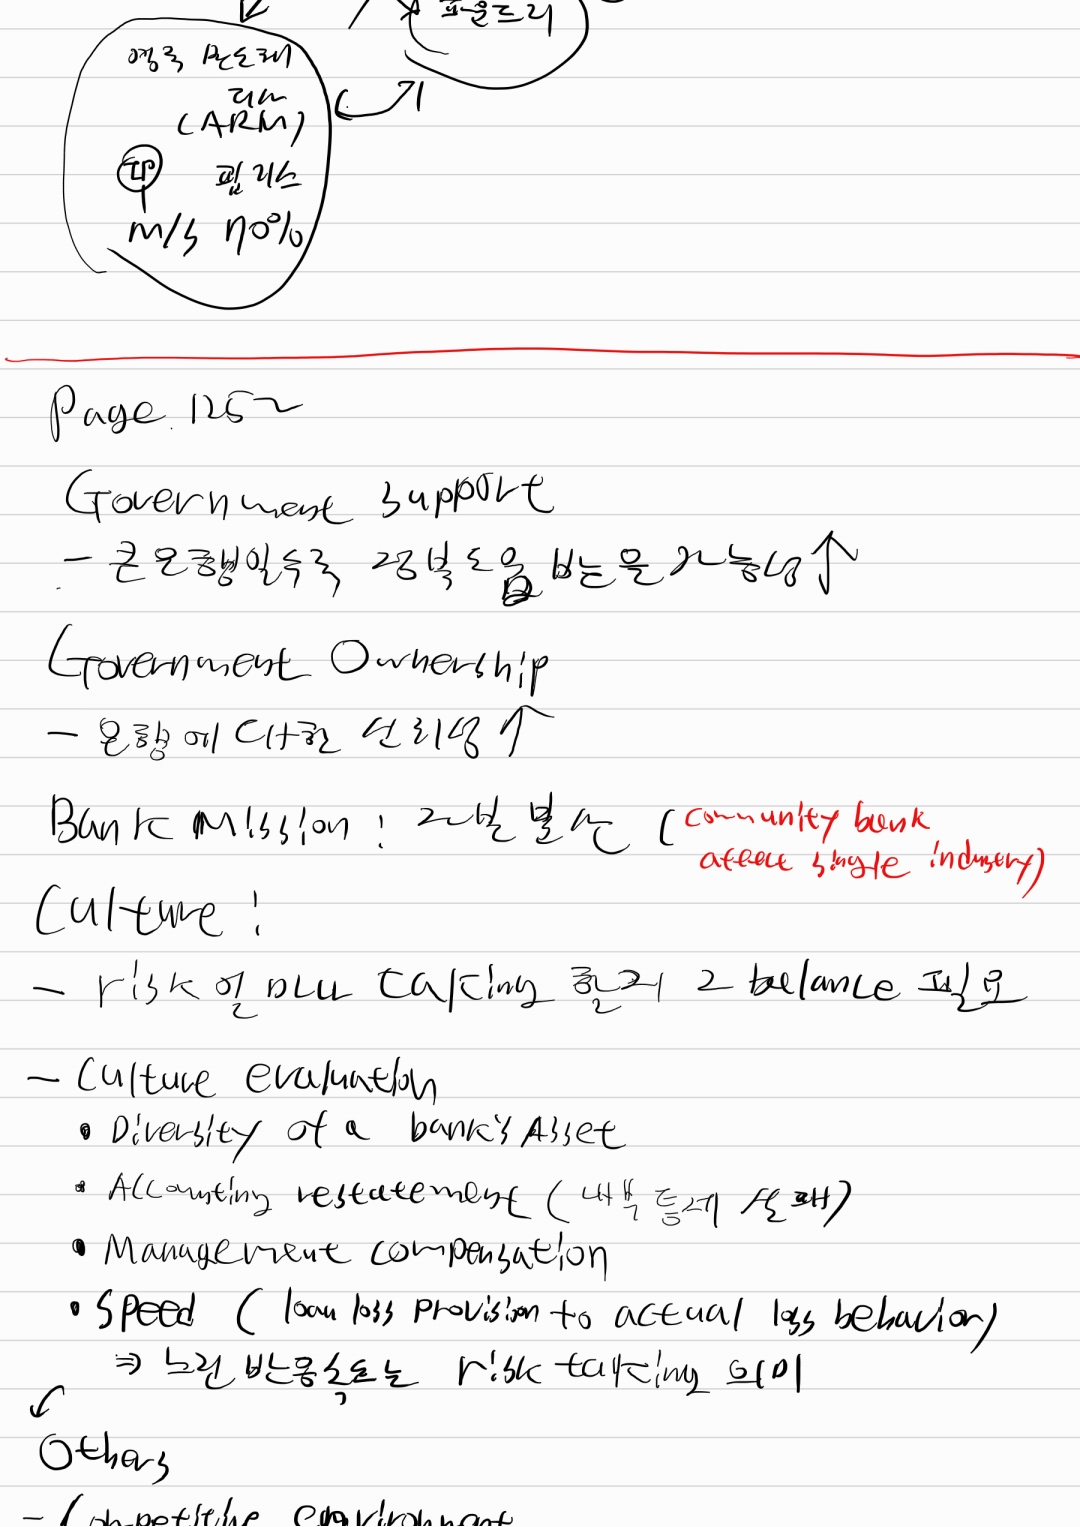 파운드리
영국 반도체
회사
(ARM)
IP 팹리스
M/S 90%
Page. 125~
Government support
- 큰 은행일수록 정부도움 받는을 가능성↑
Government Ownership
- 은행에 대한 신뢰성↑
Bank Mission : (community bank
affect single industry)
Culture :
- risk 얼마나 taking 할지 그 balance 필요
- Culture evaluation
• Diversity of a bank's Asset
• Accounting restatement (내부 통제 실패)
• Management compensation
• Speed (loan loss provision to actual loss behavior)
⇒ 느린 반응속도는 risk taking 의미
Others
- Competitive environment